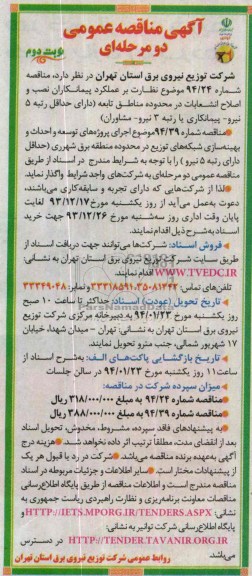 آگهی مناقصه عمومی
دو مرحله‌ای
نوبت دوم
شرکت توزیع نیروی برق استان تهران در نظر دارد، مناقصه
شماره ۹۴/۲۴ موضوع نظارت بر عملکرد پیمانکاران نصب و
اصلاح انشعابات در محدوده مناطق تابعه (دارای حداقل رتبه ۵
نیرو- پیمانکاری یا رتبه ۳ نیرو- مشاوران)
مناقصه شماره ۹۴/۳۹ موضوع اجرای پروژه‌های توسعه و احداث و
بهینه‌سازی شبکه‌های توزیع در محدوده منطقه برق شهرری (حداقل
دارای رتبه ۵ نیرو) را با توجه به شرایط مندرج در اسناد از طریق
مناقصه عمومی دو مرحله‌ای به شرکت‌های واجد شرایط واگذار نماید.
لذا از شرکت‌هایی که دارای تجربه و سابقه‌کاری می‌باشند،
دعوت به‌عمل می‌آید از روز یکشنبه مورخ ۹۳/۱۲/۱۷ لغایت
پایان وقت اداری روز سه‌شنبه مورخ ۹۳/۱۲/۲۶ جهت خرید
اسناد به‌شرح ذیل اقدام نمایند.
فروش اسناد: شرکت‌ها می‌توانند جهت دریافت اسناد از
طریق سایت شرکت توزیع نیروی برق استان تهران به نشانی:
WWW.TVEDC.IR اقدام نمایند.
تلفن‌های تماس: ۸۱۴۴۲-۳۵ و ۳۳۳۱۸۵۹۱ و نمابر: ۳۳۳۴۹۰۴۸
تاریخ تحویل (عودت) اسناد: حداکثر تا ساعت ۱۰ صبح
روز یکشنبه مورخ ۹۴/۰۱/۲۳ به دبیرخانه مرکزی شرکت توزیع
نیروی برق استان تهران به نشانی: تهران - میدان شهدا، خیابان
۱۷ شهریور شمالی، جنب مترو تحویل نمایند.
تاریخ بازگشایی پاکت‌های الف: به‌شرح اسناد از
ساعت ۱۱ روز یکشنبه مورخ ۹۴/۰۱/۲۳ در سالن جلسات
میزان سپرده شرکت در مناقصه:
مناقصه شماره ۹۴/۲۴ به مبلغ ۳۱۸/۰۰۰/۰۰۰ ریال
مناقصه شماره ۹۴/۳۹ به مبلغ ۳۸۸/۰۰۰/۰۰۰ ریال
به پیشنهادهای فاقد سپرده، مشروط، مخدوش، تحویل اسناد
بعد از انقضای مدت، مطلقاً ترتیب اثر داده نخواهد شد. هزینه درج
آگهی به‌عهده برنده مناقصه می‌باشد شرکت در رد یا قبول هر یک
از پیشنهادات مختار است. سایر اطلاعات و جزئیات مربوطه در اسناد
مناقصه مندرج است و اطلاعات مناقصه از طریق پایگاه اطلاع‌رسانی
مناقصات معاونت برنامه‌ریزی و نظارت راهبردی ریاست جمهوری به
نشانی: HTTP://IETS.MPORG.IR/TENDERS.ASPX و
پایگاه اطلاع‌رسانی شرکت توانیر به نشانی:
HTTP://TENDER.TAVANIR.ORG.IR در دسترس
می‌باشد.
روابط عمومی شرکت توزیع نیروی برق استان تهران